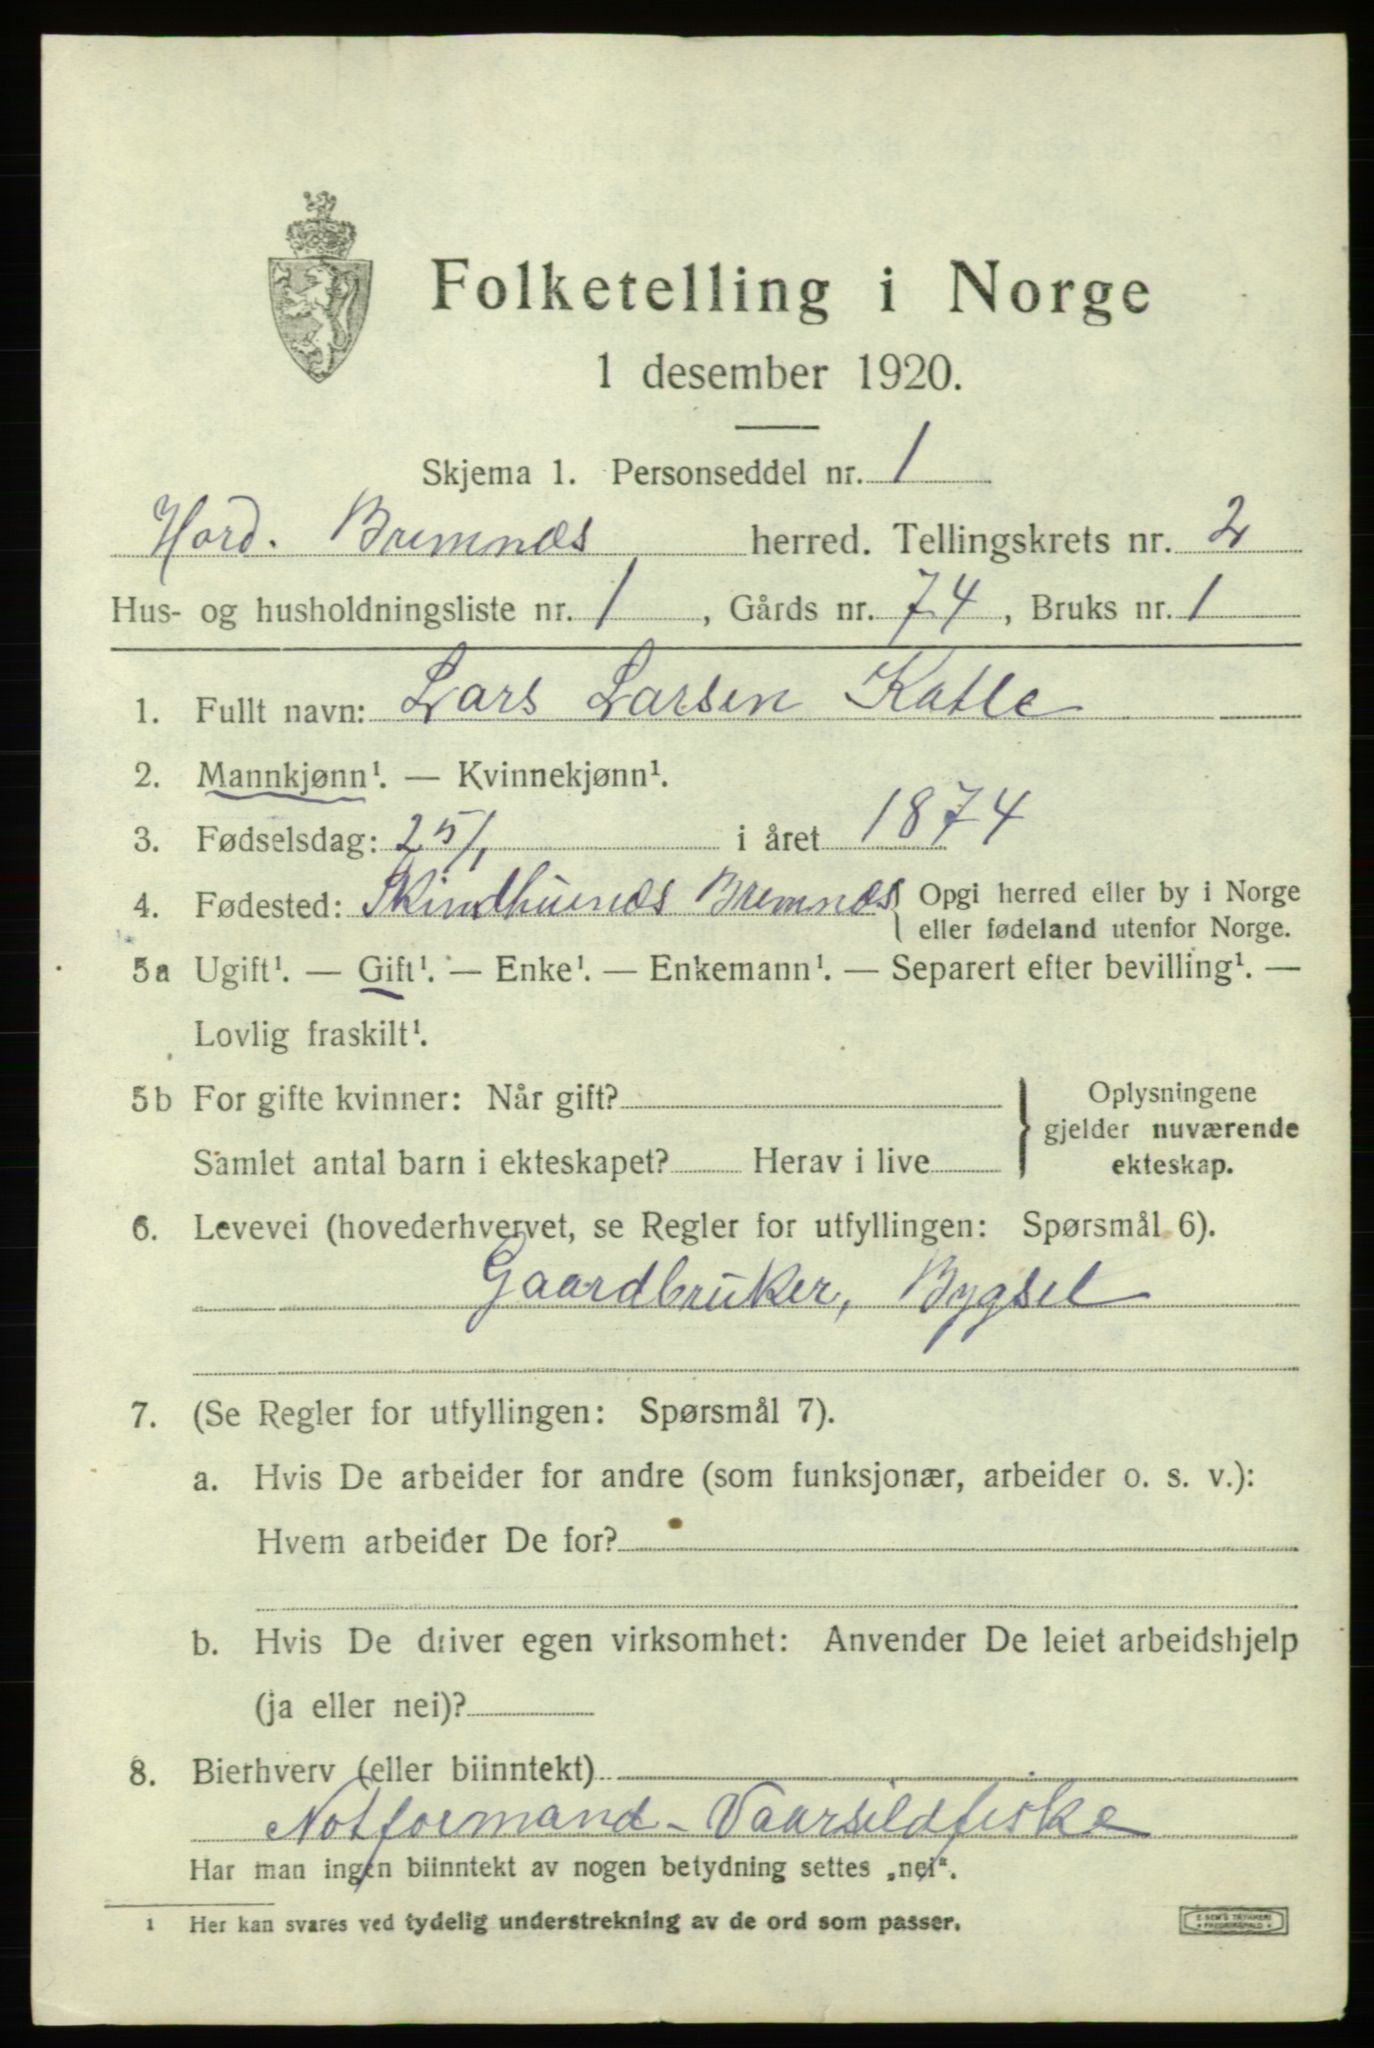 Folketelling i Norge
1 desember 1920.
Skjema 1. Personseddel nr. 1
Hord. Bremnæs herred. Tellingskrets nr. 2
Hus- og husholdningsliste nr. 1, Gårds nr. 74, Bruks nr. 1
1. Fullt navn: Lars Larsen Katle
2. Mannkjønn¹. — Kvinnekjønn¹.
3. Fødselsdag: 25/1 i året 1874
4. Fødested: Bremnæs { Opgi herred eller by i Norge
eller fødeland utenfor Norge.
5a Ugift¹. — Gift¹. — Enke¹. — Enkemann¹. — Separert efter bevilling¹. —
Lovlig fraskilt¹.
5b For gifte kvinner: Når gift?
Samlet antal barn i ekteskapet? Herav i live
} Oplysningene
gjelder nuværende
ekteskap.
6. Levevei (hovederhvervet, se Regler for utfyllingen: Spørsmål 6).
Gaardbruker, Bygsel
7. (Se Regler for utfyllingen: Spørsmål 7).
a. Hvis De arbeider for andre (som funksjonær, arbeider o. s. v.):
Hvem arbeider De for?
b. Hvis De driver egen virksomhet: Anvender De leiet arbeidshjelp
(ja eller nei)?
8. Bierhverv (eller biinntekt)
Notformand - Vaarsildfiske
Har man ingen biinntekt av nogen betydning settes „nei“.
1 Her kan svares ved tydelig understrekning av de ord som passer.